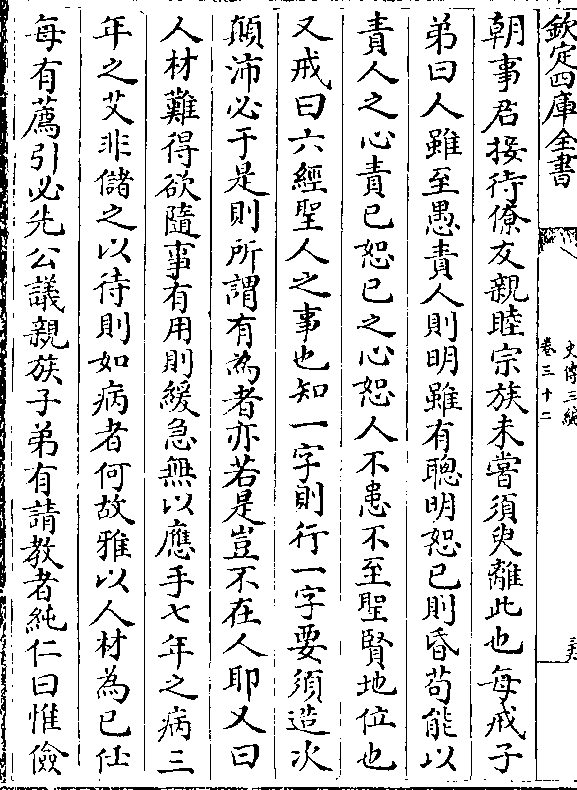 欽定四庫全書
史傳三編
卷三十二
朝事君接待僚友親睦宗族未嘗須臾離此也每戒子
弟曰人雖至愚責人則明雖有聰明恕已則昏苟能以
責人之心責已恕已之心恕人不患不至聖賢地位也
又戒曰六經聖人之事也知一字則行一字要須造次
顛沛必于是則所謂有為者亦若是豈不在人耶又曰
人材難得欲隨事有用則緩急無以應手七年之病三
年之艾非儲之以待則如病者何故雅以人材為已仕
每有薦引必先公議親族子弟有請教者純仁曰惟儉